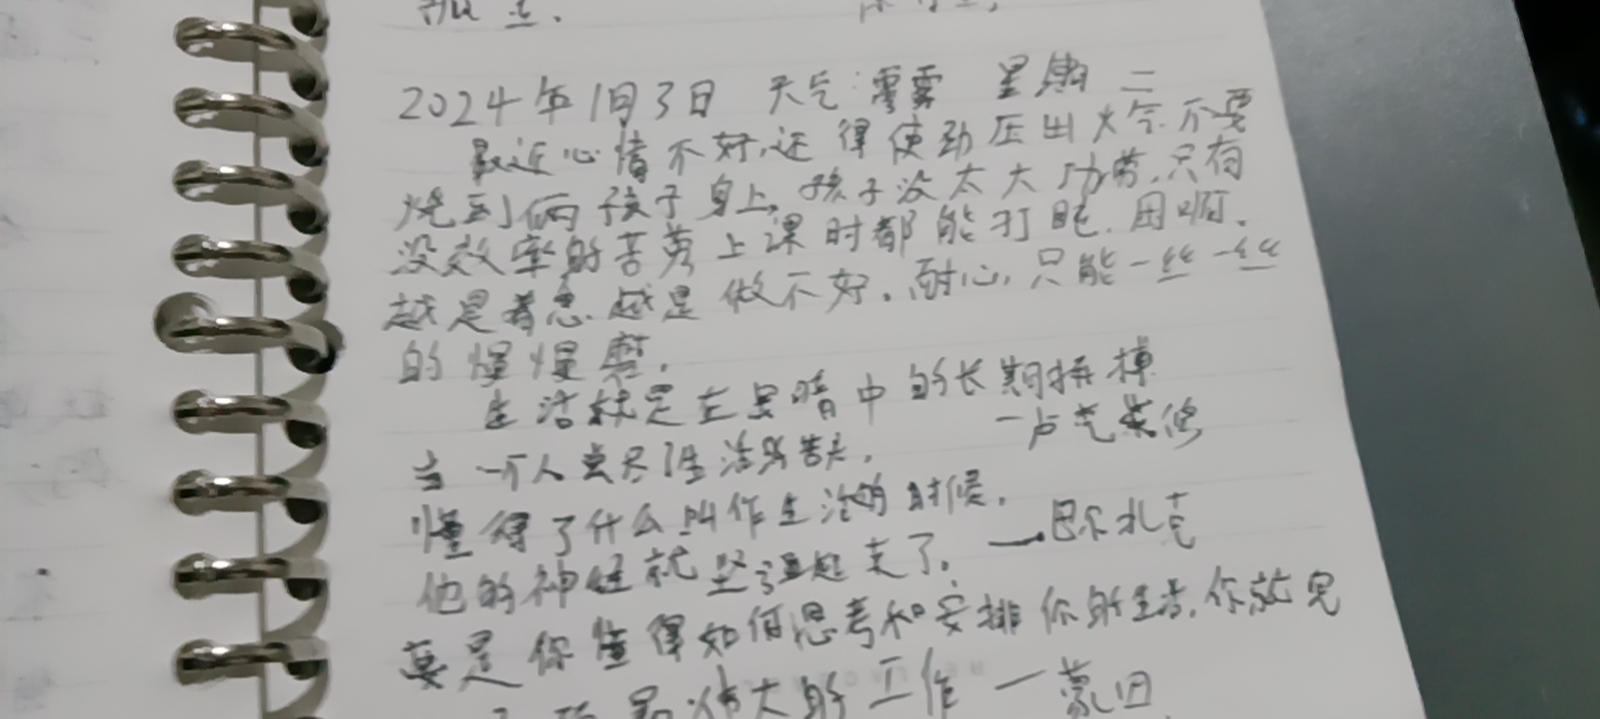 2024年1月3日 天气:雾霾 星期二
最近心情不好,还得使劲压出火气不要
烧到俩孩子身上,孩子没太大功劳,只有
没效率的苦劳上课时都能打盹.困啊.
越是着急.越是做不好.耐心,只能一丝一丝
的慢慢磨.
生活就是在黑暗中的长期挣掉
一卢克莱修
当一个人尝尽了生活所苦头,
懂得了什么叫作生活的时候,
他的神经就坚强起来了. —巴尔扎克
要是你懂得如何思考和安排你的生活,你就完
最伟大的工作 一蒙田